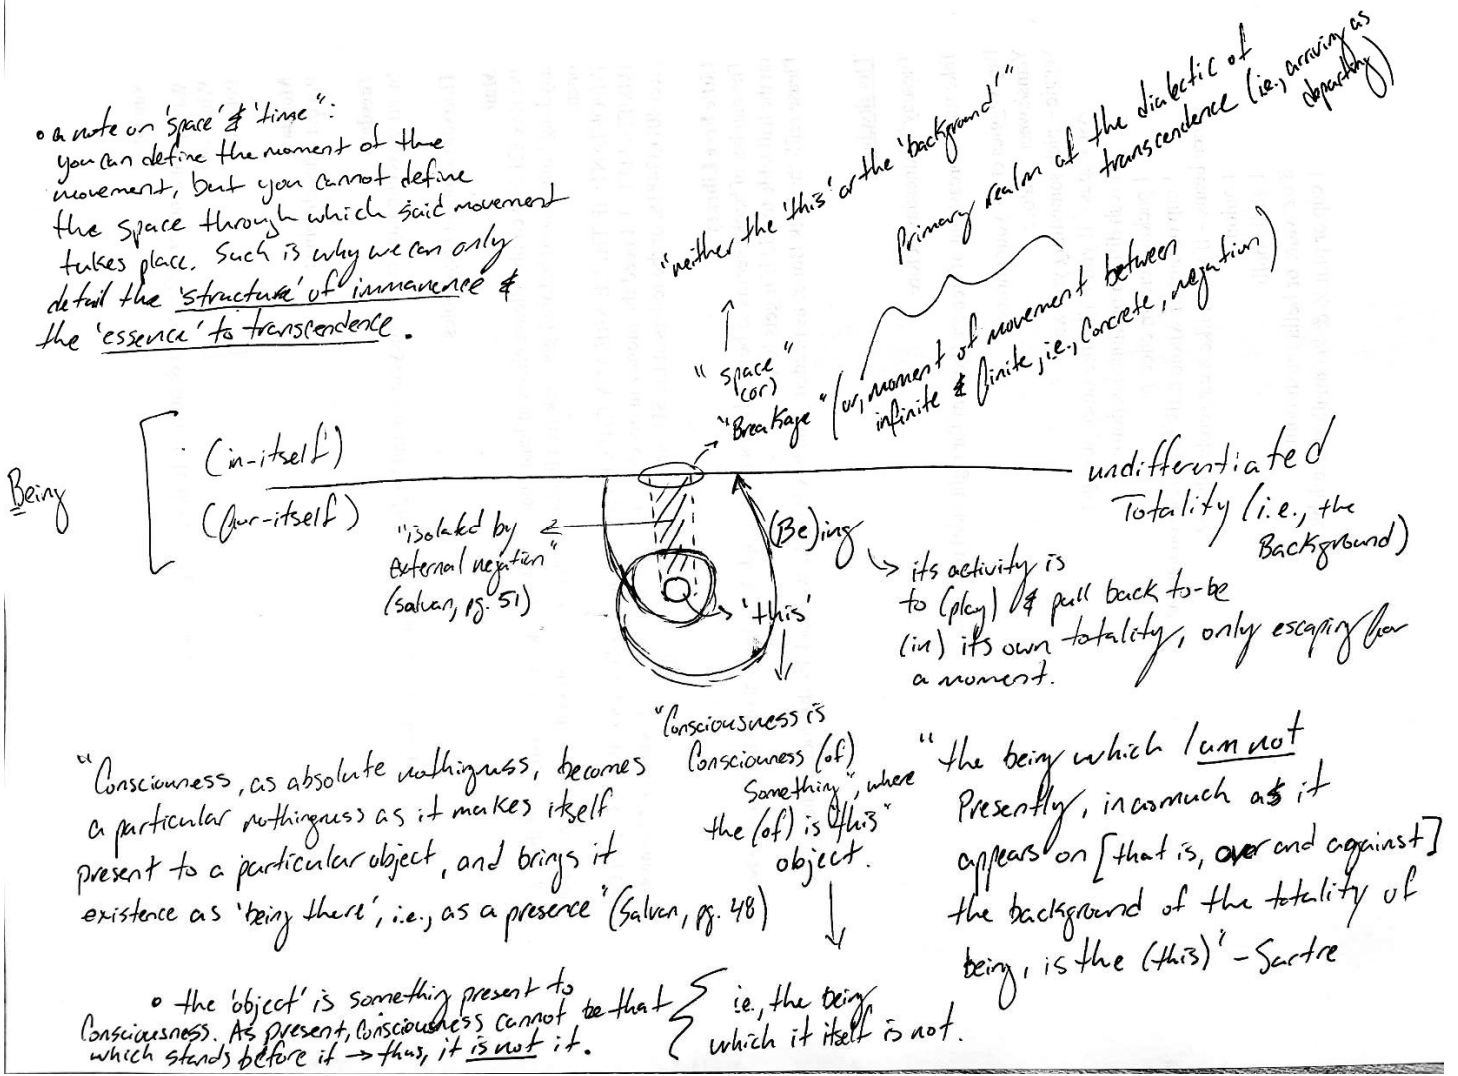 • a note on 'space' & 'time":
you can define the moment of the
movement, but you cannot define
the space through which said movement
takes place. Such is why we can only
detail the 'structure' of immanence &
the 'essence' to transcendence.
"neither the 'this' or the 'background'"
Primary realm of the dialectic of
transcendence (i.e., arriving as
departing)
"space"
(or)
"Breakage" (or, moment of movement between
infinite & finite, i.e., Concrete, negation)
Being
(in-itself)
(for-itself)
undifferentiated
Totality (i.e., the
Background)
"isolated by
external negation"
(Salvan, pg. 51)
(Be)ing
'this'
its activity is
to (play) & pull back to-be
(in) its own totality, only escaping for
a moment.
"Consciousness is
Consciouness (of)
Something", where
the (of) is "this"
object.
"Consciouness, as absolute nothingness, becomes
a particular nothingness as it makes itself
present to a particular object, and brings it
existence as 'being there', i.e., as a presence" (Salvan, pg. 48)
"the being which I am not
Presently, inasmuch as it
appears on [that is, over and against]
the background of the totality of
being, is the (this)" - Sartre
• the 'object' is something present to
Consciousness. As present, Consciousness cannot be that
which stands before it → thus, it is not it.
i.e., the being
which it itself is not.